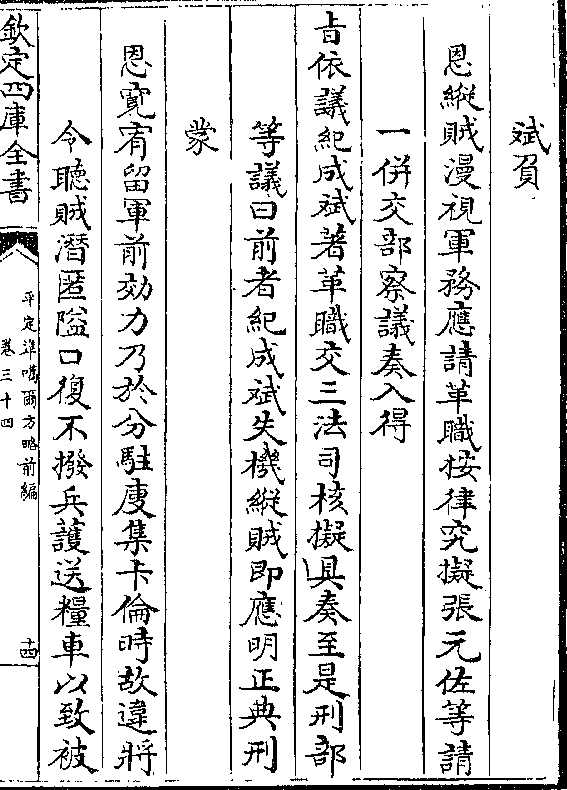 斌負
恩縱賊漫視軍務應請革職按律究擬張元佐等請
一併交部察議奏入得
㫖依議紀成斌著革職交三法司核擬具奏至是刑部
等議曰前者紀成斌失機縱賊即應明正典刑
蒙
恩寛宥留軍前効力乃於分駐廋集卡倫時故違將
令聽賊潛匿隘口復不撥兵護送糧車以致被
欽定四庫全書
平定準噶爾方略前編
卷三十四
十四